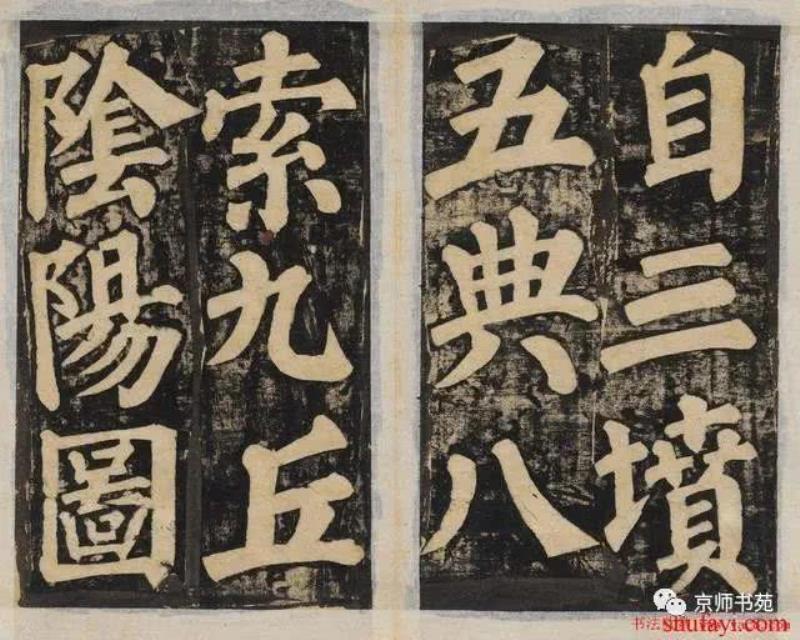 自三墳
五典八
索九丘
陰陽圖
京师书苑
shufayi.com